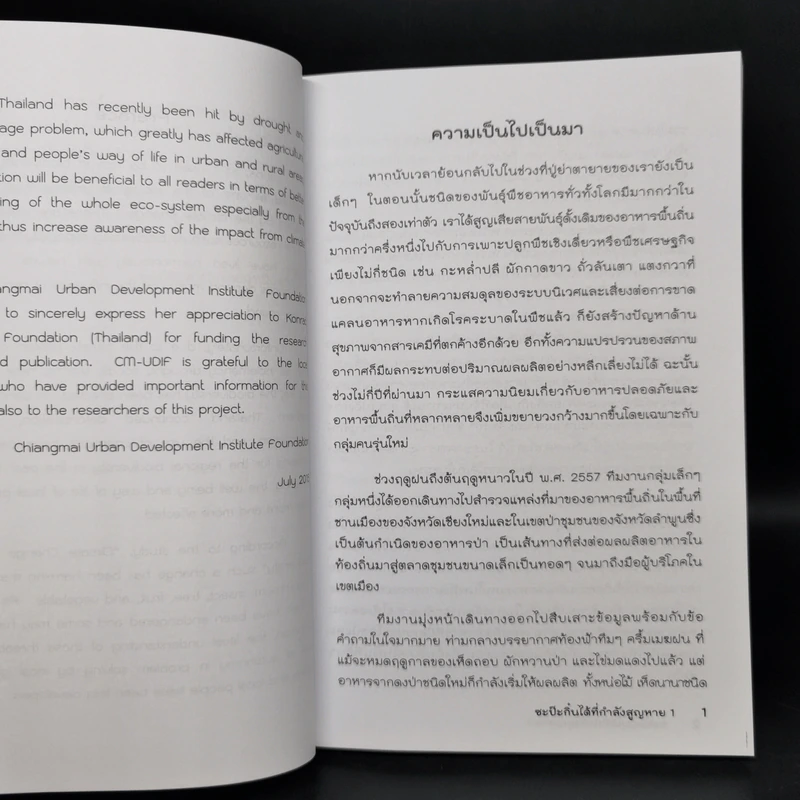 Thailand has recently been hit by drought
age problem, which greatly has affected
and people's way of life in urban and rural
tion will be beneficial to all readers in terms of
ing of the whole eco-system especially from
thus increase awareness of the impact from
angmai Urban Development Institute
to sincerely express her appreciation to
Foundation (Thailand) for funding the
d publication. CM-UDIF is grateful to the
who have provided important information for
also to the researchers of this project.
Chiangmai Urban Development Institute Foundation
July
ความเป็นไปเป็นมา
หากนับเวลาย้อนกลับไปในช่วงที่ปู่ย่าตายายของเรายังเป็น
เด็กๆ ในตอนนั้นชนิดของพันธุ์พืชอาหารทั่วทั้งโลกมีมากกว่าใน
ปัจจุบันถึงสองเท่าตัว เราได้สูญเสียสายพันธุ์ดั้งเดิมของอาหารพื้นถิ่น
มากกว่าครึ่งหนึ่งไปกับการเพาะปลูกพืชเชิงเดี่ยวหรือพืชเศรษฐกิจ
เพียงไม่กี่ชนิด เช่น กะหล่ำปลี ผักกาดขาว ถั่วลันเตา แตงกวาที่
นอกจากจะทำลายความสมดุลของระบบนิเวศและเสี่ยงต่อการขาด
แคลนอาหารหากเกิดโรคระบาดในพืชแล้ว ก็ยังสร้างปัญหาด้าน
สุขภาพจากสารเคมีที่ตกค้างอีกด้วย อีกทั้งความแปรปรวนของสภาพ
อากาศก็มีผลกระทบต่อปริมาณผลผลิตอย่างหลีกเลี่ยงไม่ได้ ฉะนั้น
ช่วงไม่กี่ปีที่ผ่านมา กระแสความนิยมเกี่ยวกับอาหารปลอดภัยและ
อาหารพื้นถิ่นที่หลากหลายจึงเพิ่มขยายวงกว้างมากขึ้นโดยเฉพาะกับ
กลุ่มคนรุ่นใหม่
ช่วงฤดูฝนถึงต้นฤดูหนาวในปี พ.ศ. 2557 ทีมงานกลุ่มเล็กๆ
กลุ่มหนึ่งได้ออกเดินทางไปสำรวจแหล่งที่มาของอาหารพื้นถิ่นในพื้นที่
ชานเมืองของจังหวัดเชียงใหม่และในเขตป่าชุมชนของจังหวัดลำพูนซึ่ง
เป็นต้นกำเนิดของอาหารป่า เป็นเส้นทางที่ส่งต่อผลผลิตอาหารใน
ท้องถิ่นมาสู่ตลาดชุมชนขนาดเล็กเป็นทอดๆ จนมาถึงมือผู้บริโภคใน
เขตเมือง
ทีมงานมุ่งหน้าเดินทางออกไปสืบเสาะข้อมูลพร้อมกับข้อ
คำถามในใจมากมาย ท่ามกลางบรรยากาศท้องฟ้าทึมๆ ครึ้มเมฆฝน ที่
แม้จะหมดฤดูกาลของเห็ดถอบ ผักหวานป่า และไข่มดแดงไปแล้ว แต่
อาหารจากดงป่าชนิดใหม่ก็กำลังเริ่มให้ผลผลิต ทั้งหน่อไม้ เห็ดนานาชนิด
ซะป๊ะกิ๋นได้ที่กำลังสูญหาย 1 1